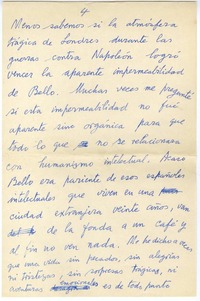 4
Menos sabemos si la atmósfera
trágica de Londres durante las
guerras contra Napoleón logró
vencer la aparente impermeabilidad
de Bello. Muchas veces me pregunté
si esta impermeabilidad no fué
aparente sino orgánica para que
todo lo que no se relacionara
con humanismo intelectual. Acaso
Bello era pariente de esos españoles
intelectuales que viven en una
ciudad extranjera veinte años, van
de la fonda a un café y
al fin no ven nada. Me he dicho a veces
que una vida sin pecados, sin alegrías
ni tristezas, sin sorpresas trágicas, ni
aventuras emocionales es de todo punto